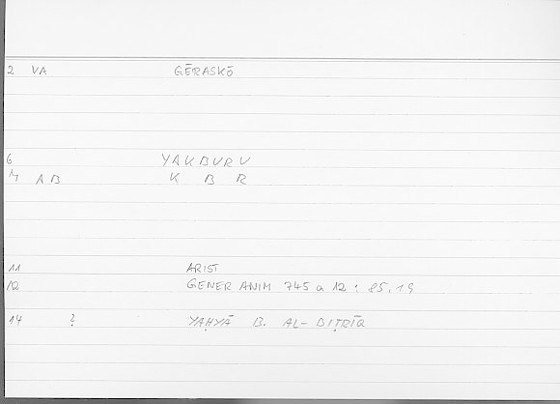 2 VA GĒRASKŌ
6 YAKBURU
7 AB K B R
11 ARIST
12 GENER ANIM 745 a 12 : 85.19
14 ? YAḤYĀ B. AL-BIṬRĪQ